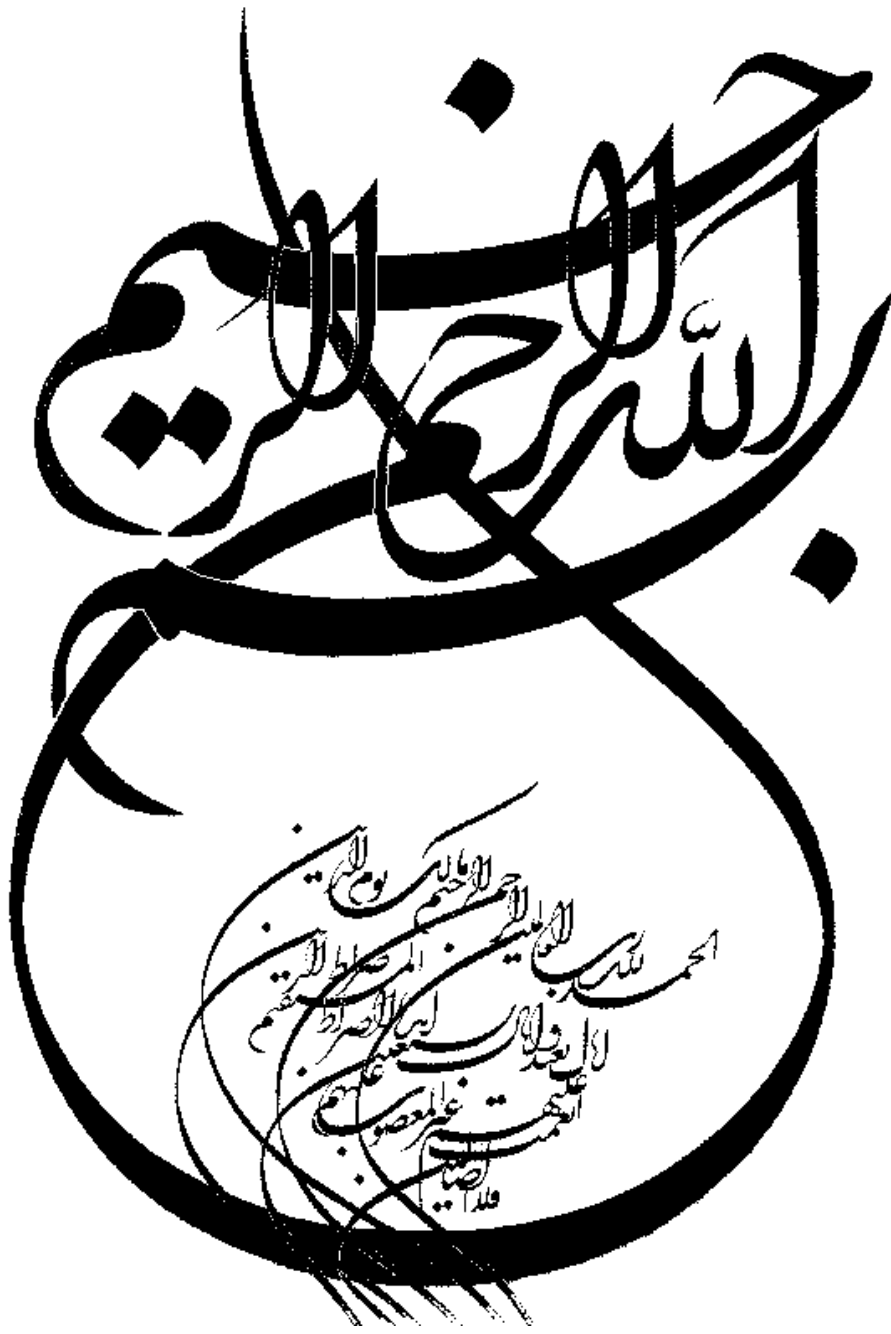 بسم الله الرحمن الرحیم
الحمد لله رب العالمین
الرحمن الرحیم مالک یوم الدین
ایاک نعبد و ایاک نستعین
اهدنا الصراط المستقیم
صراط الذین
انعمت علیهم
غیر المغضوب علیهم
ولا الضالین